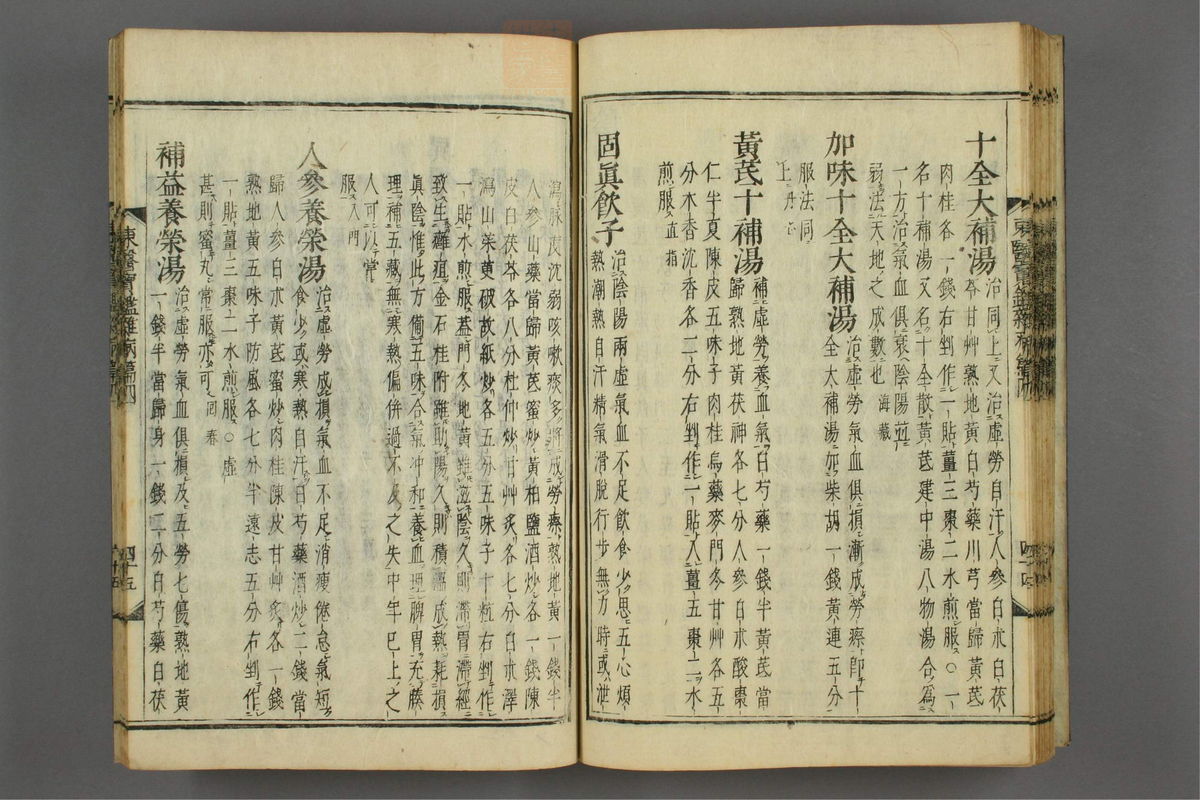 十全大補湯 治同上又治虛勞自汗人參白朮白茯
苓甘艸熟地黃白芍藥川芎當歸黃芪
肉桂各一錢右剉作一貼薑三棗二水煎服○一
名十補湯又名十全散黃芪建中湯八物湯合爲
一方治氣血俱衰陰陽並
弱法天地之成數也 海藏
加味十全大補湯 治虛勞氣血俱損漸成勞瘵卽十
全大補湯加柴胡一錢黃連五分
服法同
上 丹心
黃芪十補湯 補虛勞養血氣白芍藥一錢半黃芪當
歸熟地黃茯神各七分人參白朮酸棗
仁半夏陳皮五味子肉桂烏藥麥門冬甘艸各五
分木香沈香各二分右剉作一貼入薑五棗二水
煎服 直指
固眞飮子 治陰陽兩虛氣血不足飮食少思五心煩
熱潮熱自汗精氣滑脫行步無力時或泄
東醫寶鑑雜病篇四
四十五
瀉脉度沈弱咳嗽痰多將成勞瘵熟地黃一錢半
人參山藥當歸黃芪蜜炒黃柏鹽酒炒各一錢陳
皮白茯苓各八分杜仲炒甘艸炙各七分白朮澤
瀉山茱萸破故紙炒各五分五味子十粒右剉作
一貼水煎服蓋門冬地黃雖滋陰久則滯胃滯經
致生癰疽金石桂附雖助陽久則積溫成熱耗損
眞陰惟此方備五味合氣冲和養血理脾胃充腠
理補五藏無寒熱偏併過不及之失中年已上之
人可以常
服 入門
人參養榮湯 治虛勞成損氣血不足消瘦倦怠氣短
食少或寒熱自汗白芍藥酒炒二錢當
歸人參白朮黃芪蜜炒肉桂陳皮甘艸炙各一錢
熟地黃五味子防風各七分半遠志五分右剉作
一貼薑三棗二水煎服○虛
甚則蜜丸常服亦可 回春
補益養榮湯 治虛勞氣血俱損及五勞七傷熟地黃
一錢半當歸身一錢二分白芍藥白茯
東醫寶鑑雜病篇四